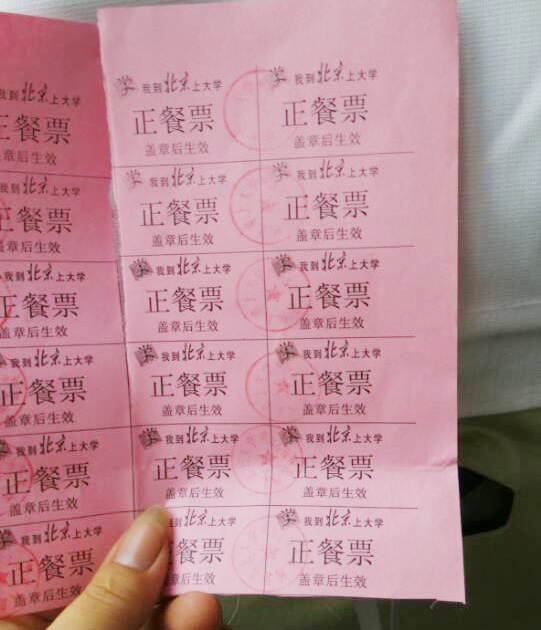 到北京上大学
正餐票
章后生效
我到北京上大学
正餐票
盖章后生效
我到北京上大学
正餐票
盖章后生效
我到北京上大学
正餐票
盖章后生效
我到北京上大学
正餐票
盖章后生效
我到北京上大学
正餐票
盖章后生效
我到北京上大学
正餐票
盖章后生效
我到北京上大学
正餐票
盖章后生效
我到北京上大学
正餐票
盖章后生效
我到北京上大学
正餐票
盖章后生效
我到北京上大学
正餐票
盖章后生效
我到北京上大学
餐票
后生效
我到北京上大学
正餐票
盖章后生效
我到北京上大学
正餐票
盖章后生效
我到北京上大学
正餐票
盖章后生效
我到北京上大学
正餐票
盖章后生效
我到北京上大学
正餐票
盖章后生效
我到北京上大学
正餐票
盖章后生效